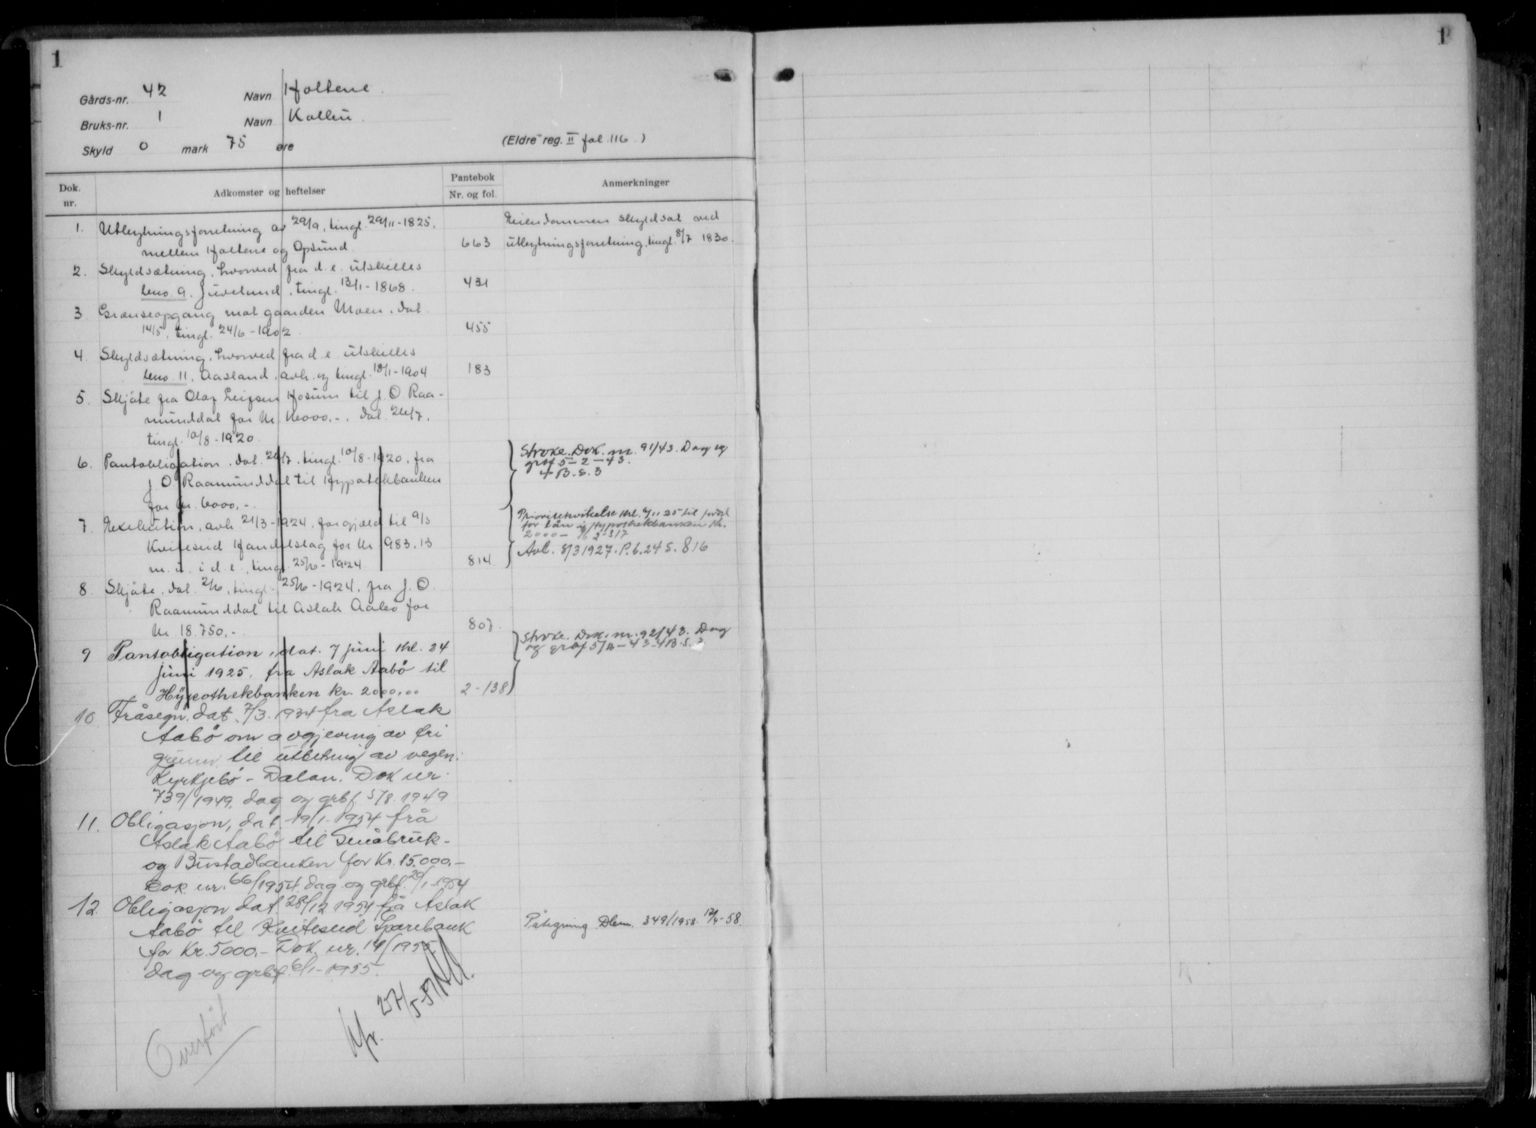 1
1
Gårds-nr. 42 Navn Holtene.
Bruks-nr. 1 Navn
Skyld 0 mark 75 øre (Eldre reg. II fol. 116.)
Dok. nr.
Adkomster og heftelser
Pantebok
Nr. og fol.
Anmerkninger
1. Utleytningsforretning av 29/9, tingl. 29/11-1825,
mellem Holtene og Opsund. 663
Eiendommen skyldsat ved
utleytningsforretning, tingl. 8/7 1830.
2. Skyldsætning, hvorved fra d. e. utskilles
bno. 9, Juvelund, tingl. 13/1-1868. 431
3 Grænseopgang mot gaarden Moen, dat.
14/5, tingl. 24/6-1902 455
4. Skyldsætning, hvorved fra d. e. utskilles
bno. 11, Aasland, avh. og tingl. 18/1-1904 183
5. Skjøte fra Olav Leifsen Hosum til J. O. Raa-
munddal for kr. dat. 26/7,
tingl. 10/8-1920.
6. Pantobligation, dat. 26/7, tingl. 10/8-1920, fra
J. O. Raamunddal til Hypotekbanken
for kr. 6000,-
Stroke. Dok. nr. 91/43. Dag og
grbf 5-2-43.
7. Exekution, avh. 21/3-1924, for gjæld til
Kvitesed Handelslag for kr. 983,13
m. m. i d. e., tingl. 25/6-1924 814
Prioritetsvikelse
for lån Hypothekbanken kr.
2000-
Avl. 8/3 1927. P.b. 24 s. 816
8 Skjøte, dat. 2/6, tingl. 25/6-1924, fra J. O.
Raamunddal til Aslak Aabø for
kr. 18.750,- 807.
9 Pantobligation, dat. 7 juni tkl. 24
juni 1925, fra Aslak Aabø til
Hypothekbanken kr. 2000,00 2-138
Stroke. Dok. nr. 92/43. Dag
og grbf 5/2-43
10. Fråsegn, dat. 7/3. 1934 fra Aslak
Aabø om avgjeving av fri
grunn til utbetring av vegen
Kyrkjebø - Dalan. Dok nr.
739/1949. dag og grbf. 5/8. 1949
11. Obligasjon, dat. 19/1. 1954 frå
Aslak Aabø til Småbruk-
og Bustadbanken for Kr. 15.000,-
Dok. nr. 66/1954. dag og grbf. 20/1-1954
12. Obligasjon dat. 28/12 1954 frå Aslak
Aabø til Kviteseid Sparebank
for Kr. 5000.- Dok. nr. 14/1955
dag og grbf. 6/1-1955.
Påtegning Dbnr. 349/1958
Overført